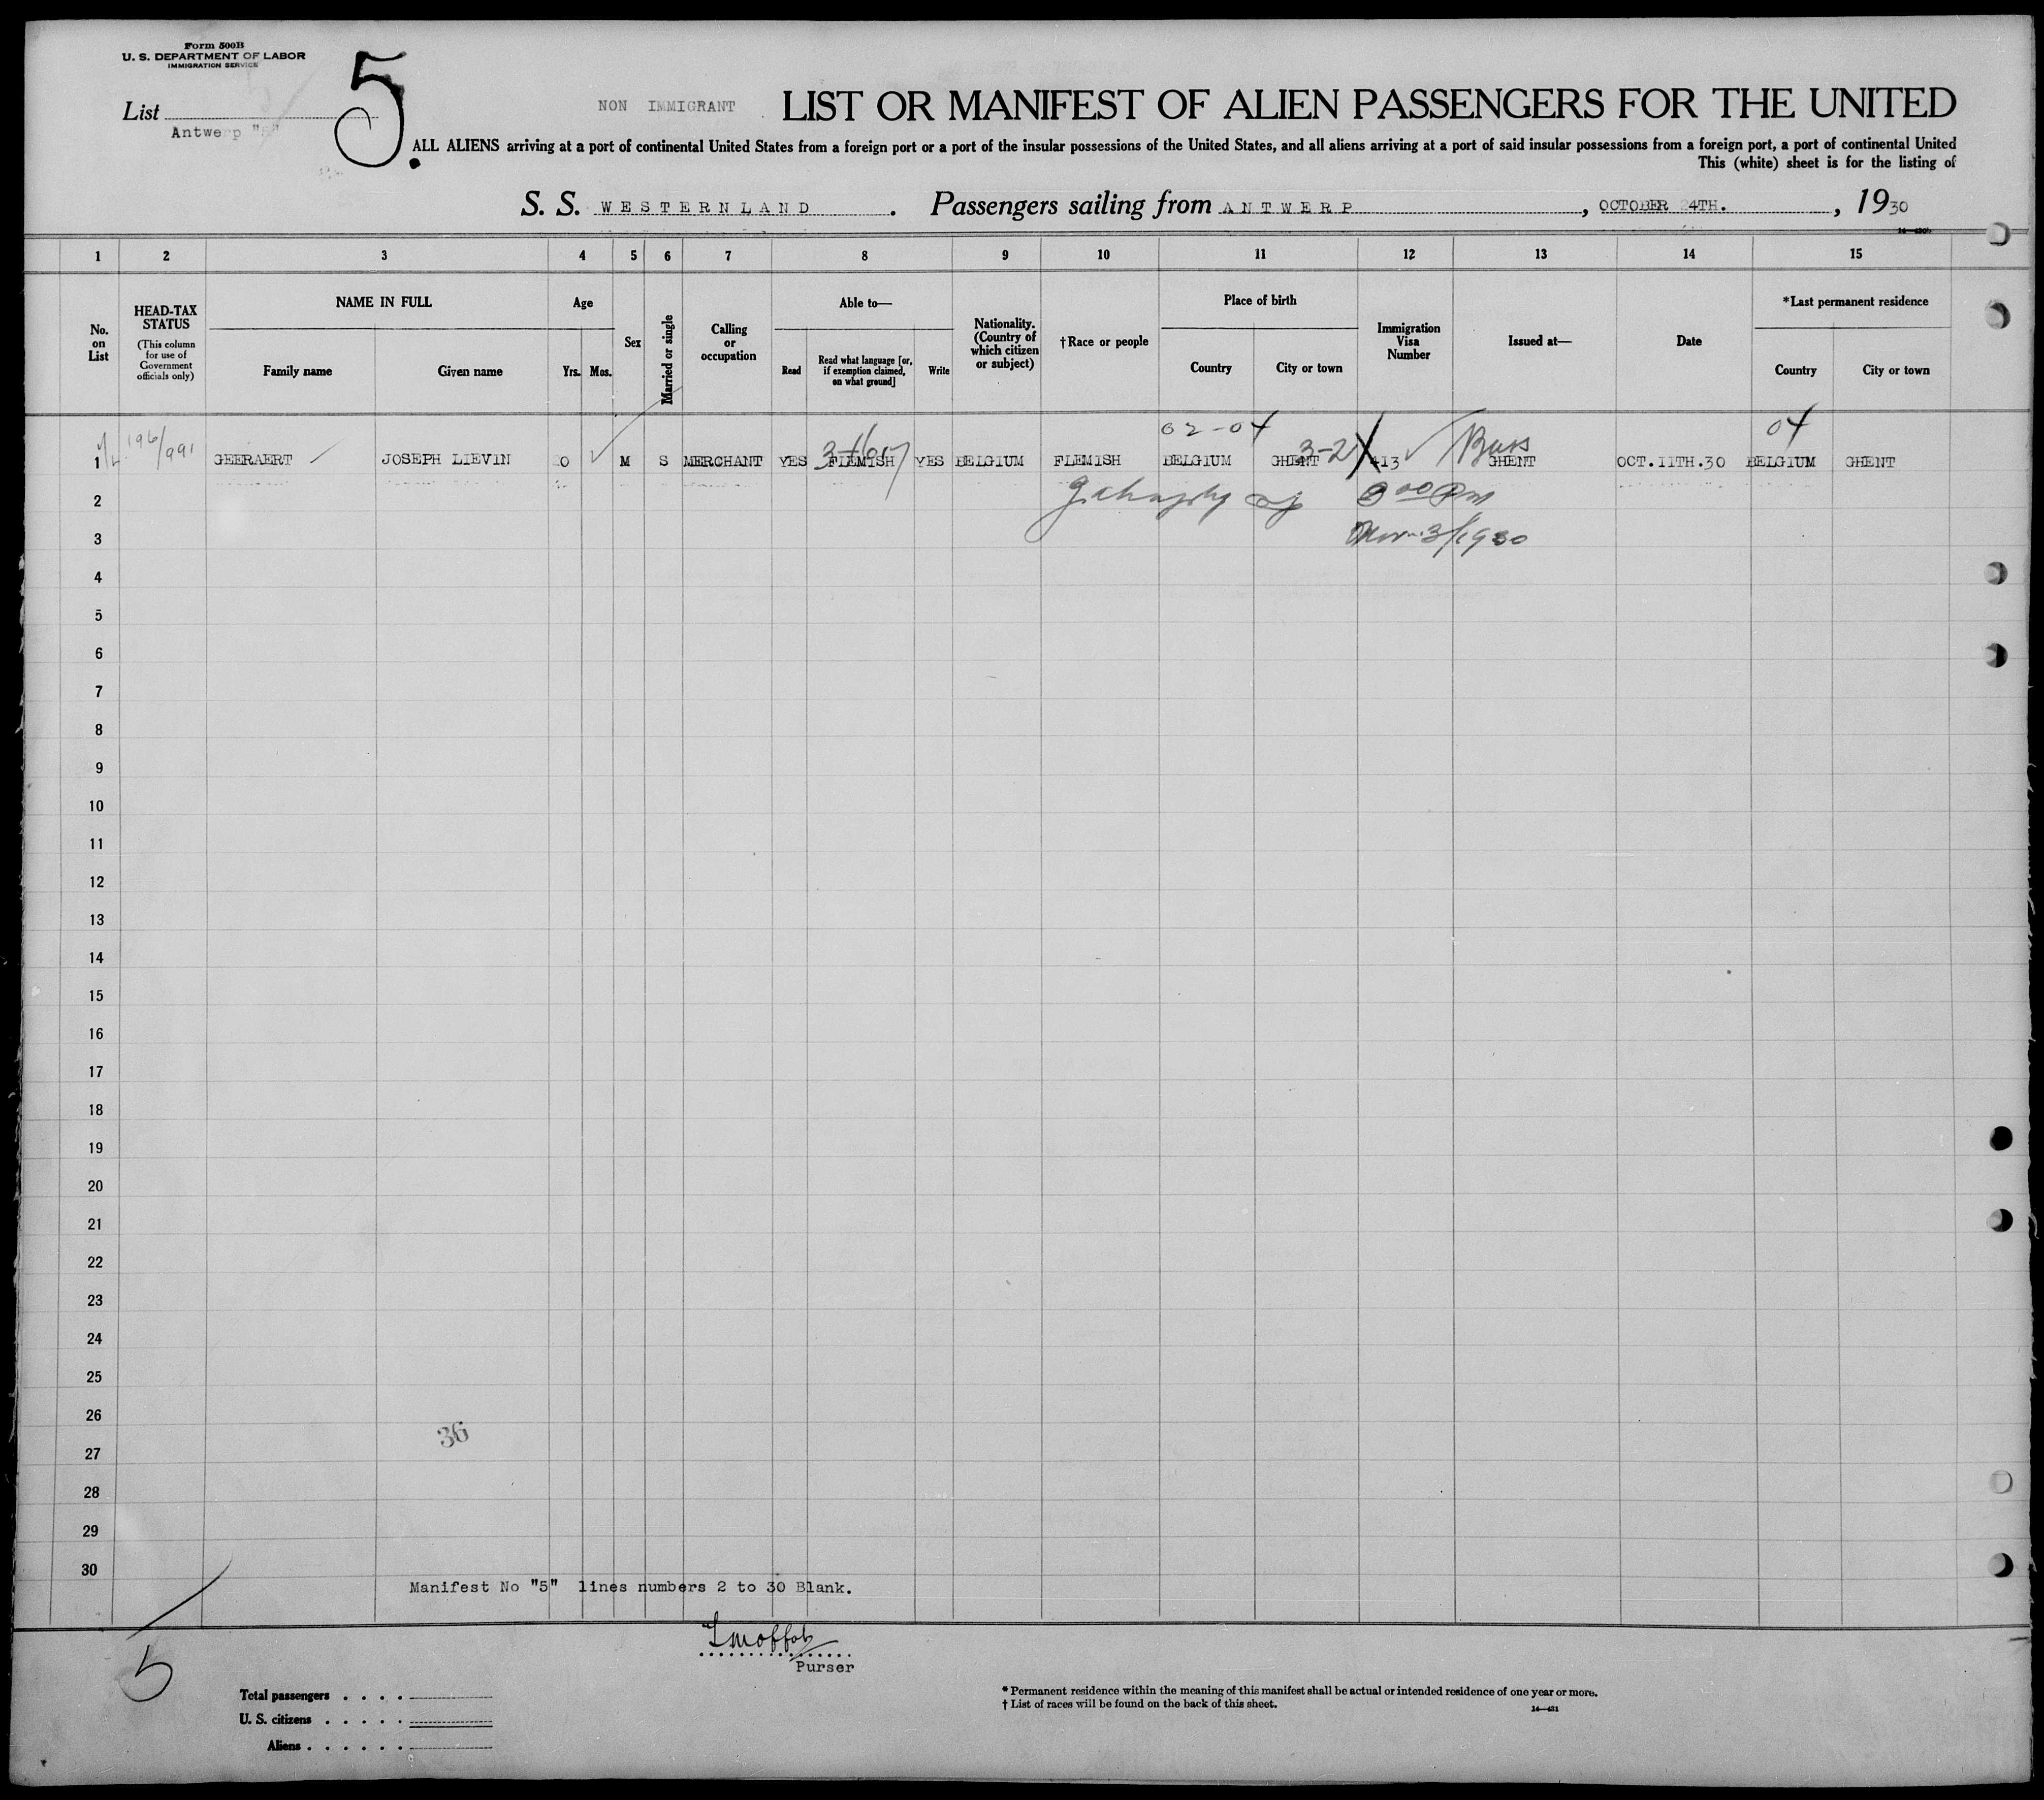 Form 500B
U. S. DEPARTMENT OF LABOR
IMMIGRATION SERVICE
List
Antwerp
5
NON IMMIGRANT
LIST OR MANIFEST OF ALIEN PASSENGERS FOR THE UNITED
ALL ALIENS arriving at a port of continental United States from a foreign port or a port of the insular possessions of the United States, and all aliens arriving at a port of said insular possessions from a foreign port, a port of continental United
This (white) sheet is for the listing of
S. S. WESTERNLAND . Passengers sailing from ANTWERP , OCTOBER 24TH. , 1930
1 2 3 4 5 6 7 8 9 10 11 12 13 14 15
No. on List
HEAD-TAX STATUS
(This column for use of Government officials only)
NAME IN FULL
Family name Given name
Age
Yrs. Mos.
Sex
Married or single
Calling or occupation
Able to—
Read
Read what language [or, if exemption claimed, on what ground]
Write
Nationality. (Country of which citizen or subject)
†Race or people
Place of birth
Country City or town
Immigration Visa Number
Issued at—
Date
*Last permanent residence
Country City or town
02-04 04
196/991
3-2
1 GEERAERT JOSEPH LIEVIN M S MERCHANT YES FLEMISH YES BELGIUM FLEMISH BELGIUM GHENT 413 GHENT OCT.11TH.30 BELGIUM GHENT
2
3 Nov. 3/1930
4
5
6
7
8
9
10
11
12
13
14
15
16
17
18
19
20
21
22
23
24
25
26
36
27
28
29
30
Manifest No "5" lines numbers 2 to 30 Blank.
5
Purser
Total passengers
U. S. citizens
Aliens
* Permanent residence within the meaning of this manifest shall be actual or intended residence of one year or more.
† List of races will be found on the back of this sheet.